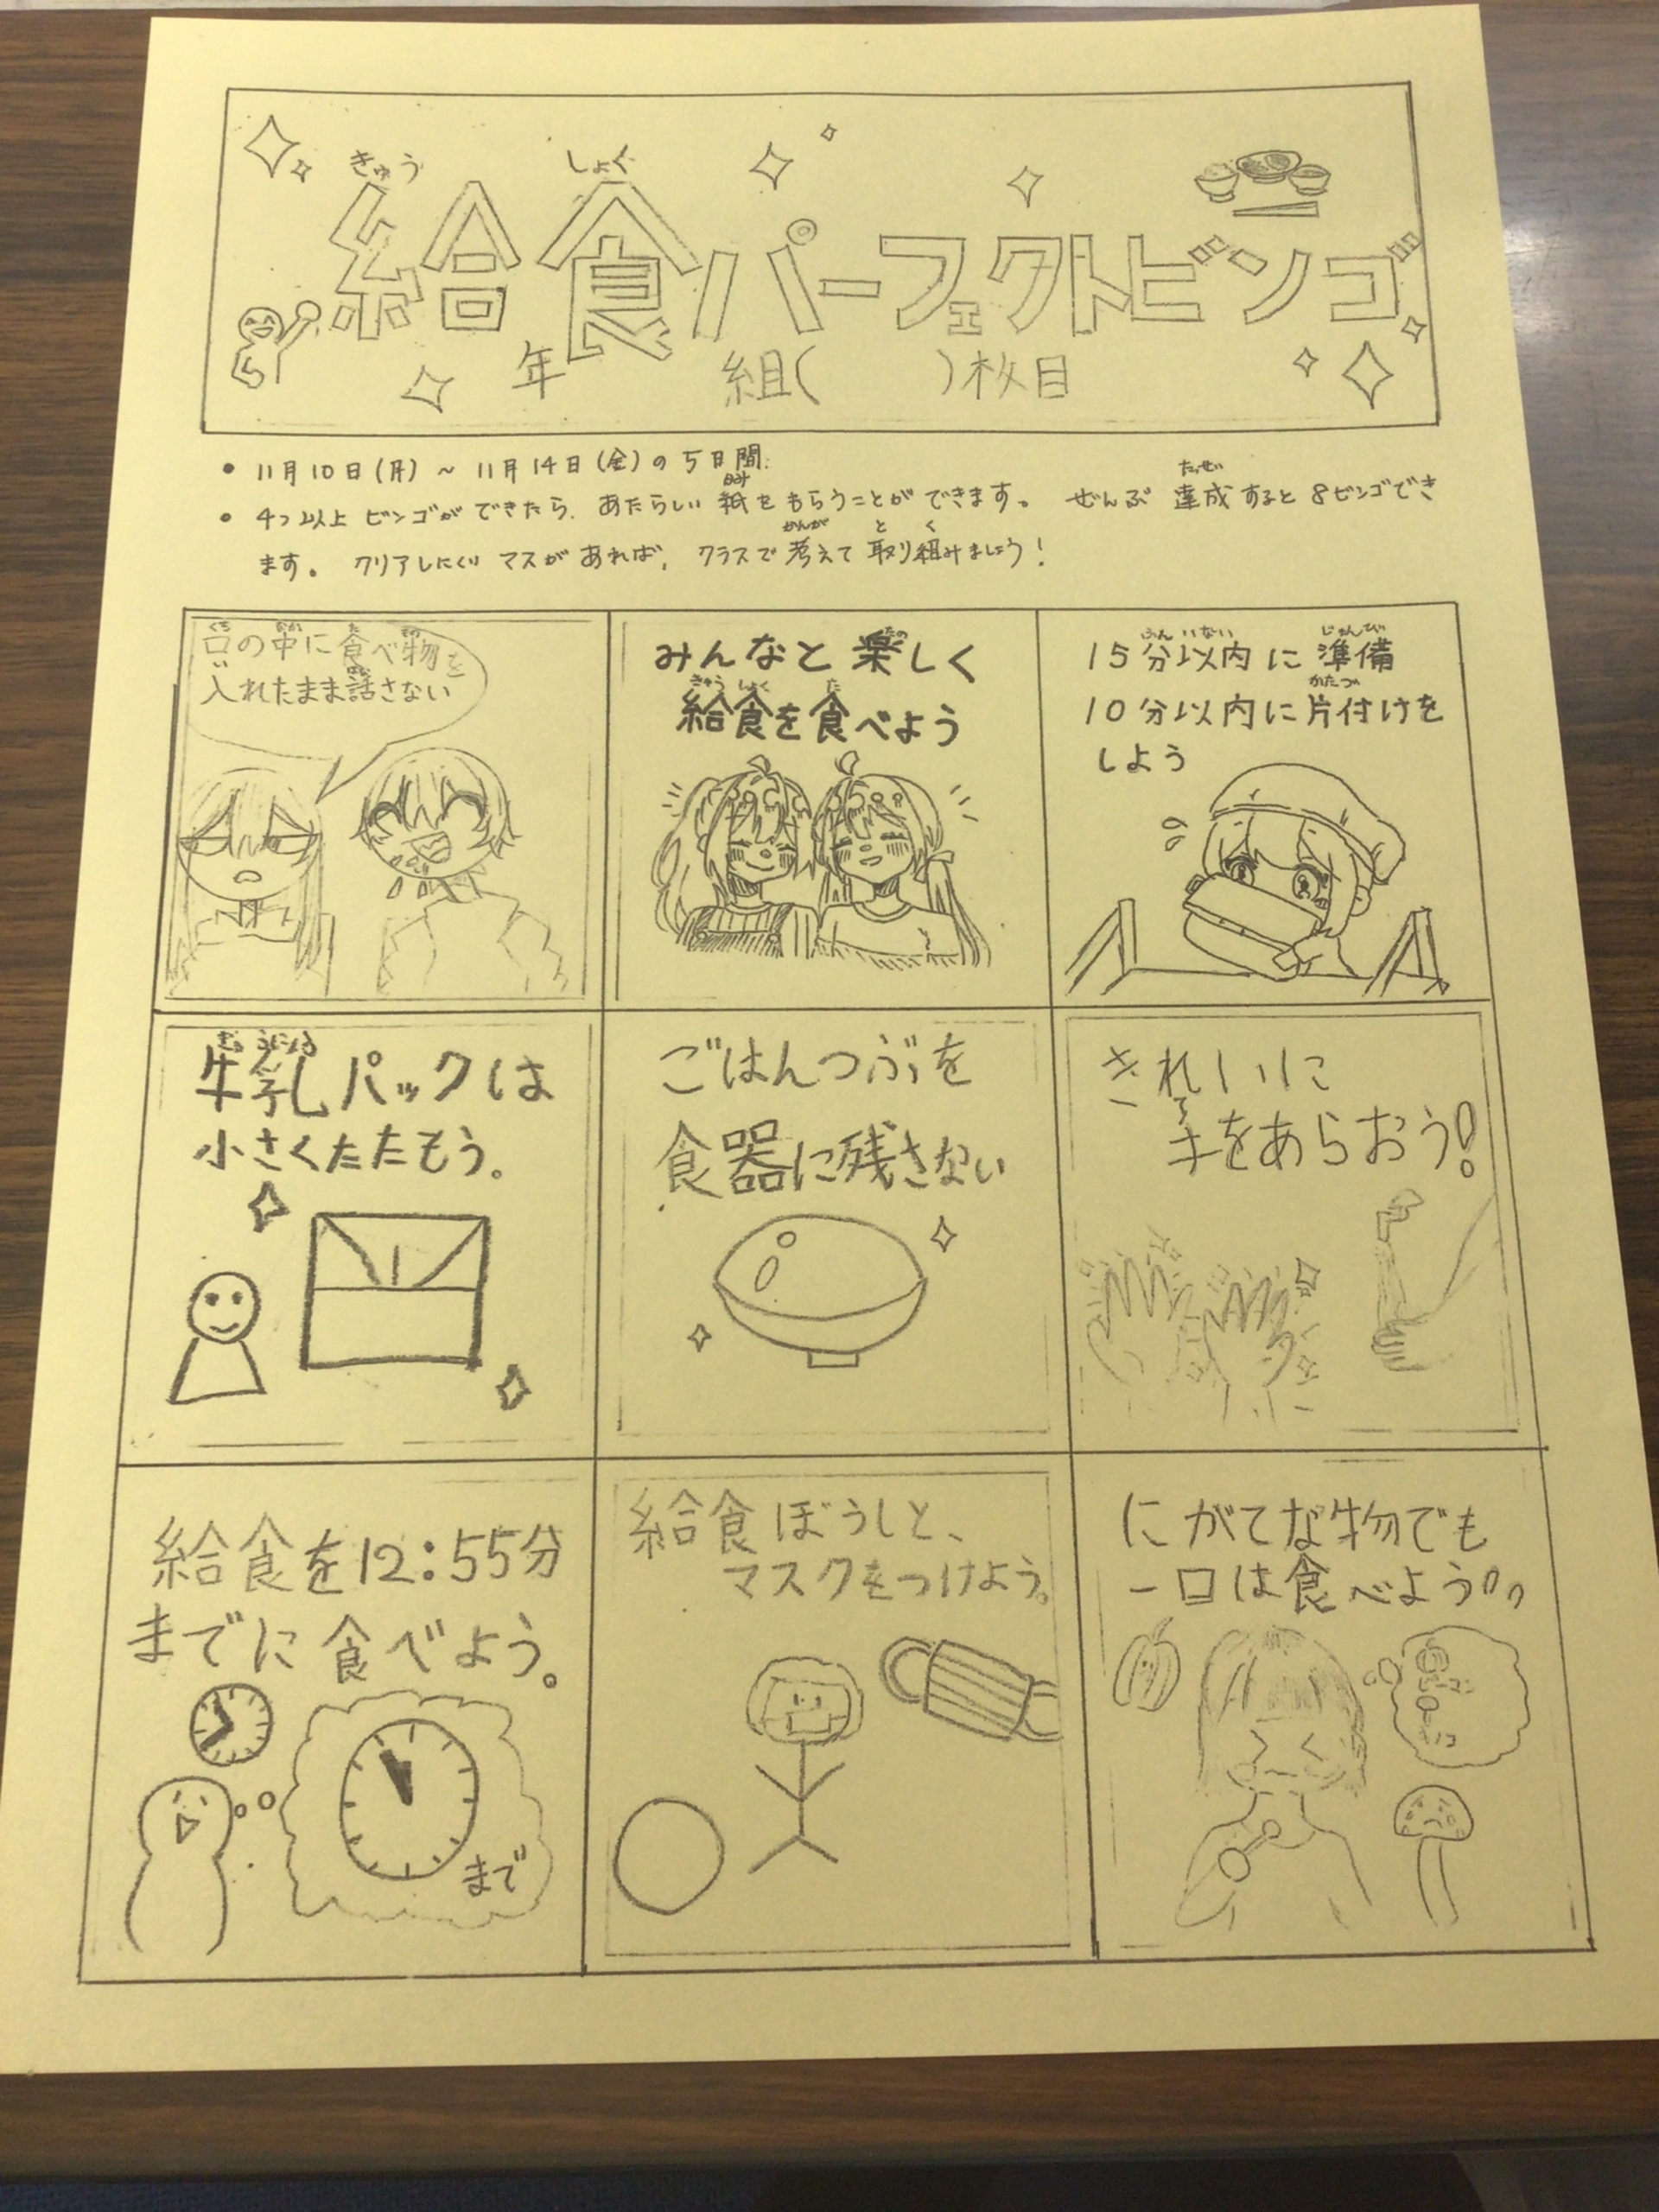 きゅう しょく
給食パーフェクトビンゴ
年 組( )枚目
• 11月10日(月)~11月14日(金)の5日間.
かみ たっせい
• 4つ以上 ビンゴが できたら, あたらしい 紙を もらうことが できます。 ぜんぶ 達成すると 8ビンゴでき
かんが と く
ます。 クリアしにくい マスが あれば, クラスで 考えて 取り組みましょう!
くち なか た もの
口の中に食べ物を
はな
入れたまま話さない
たの
みんなと 楽しく
きゅう しょく た
給食を食べよう
ふん いない じゅんび
15分以内に 準備
かたづ
10分以内に片付けを
しよう
牛乳パックは
小さくたたもう。
ごはんつぶを
食器に残さない
きれいに
て
手をあらおう!
給食を12:55分
までに 食べよう。
まで
給食ぼうしと、
マスクをつけよう。
にがてな物でも
一口は食べよう
ピーマン